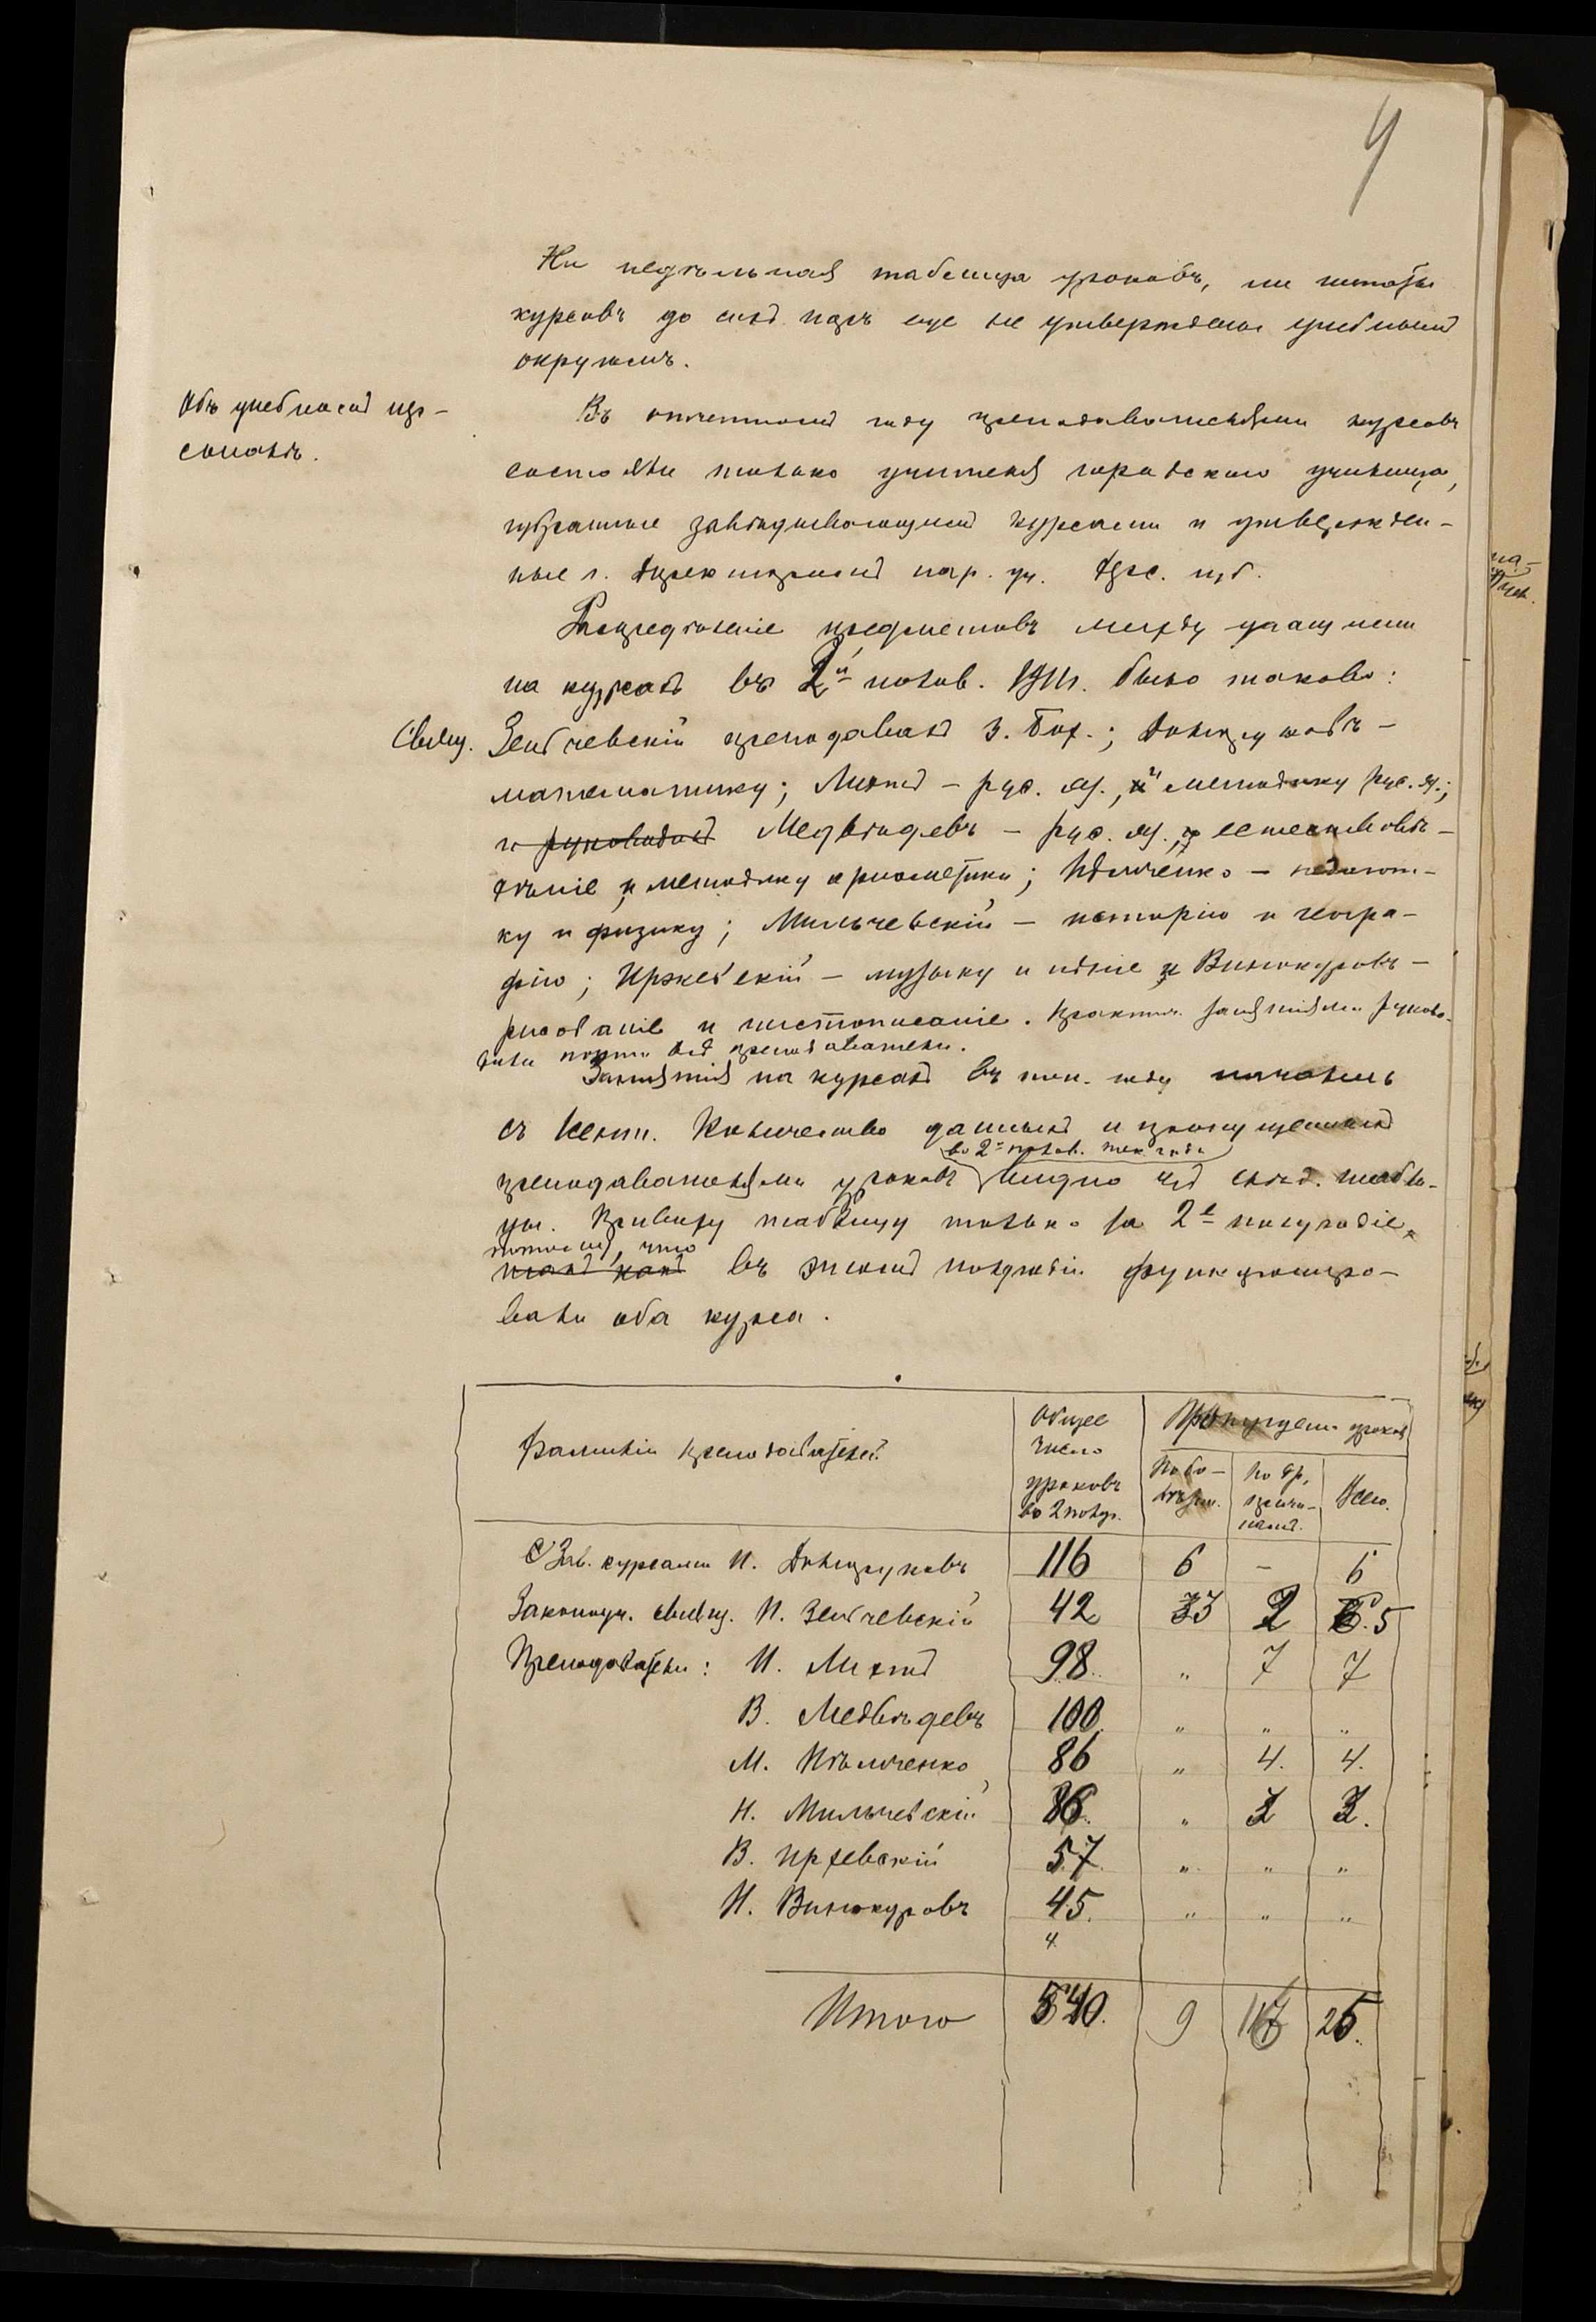 4
Ни недѣльная таблица уроковъ, ни штаты
курсовъ до сихъ поръ еще не утверждены учебнымъ
округомъ.
Объ учебномъ пер-
соналѣ.
Въ отчетномъ году преподавателями курсовъ
состояли только учителя городского училища,
избранные завѣдывающимъ курсами и утвержден-
ные г. Директоромъ нар. уч. губ.
Распредѣленіе предметовъ между учащими
на курсахъ въ 2й полов. 1911г. было таково:
Свящ. Зенбчевскій преподавалъ З. Бож.; Долгруковъ –
математику; Лихтъ – рус. яз., и методику рус. яз.;
и руководилъ Медвѣдевъ – рус. яз., естествовѣ-
дѣніе и методику ариѳметики; Ивльченко – педагоги-
ку и физику; Мильчевскій – исторію и геогра-
фію; Иржевскій – музыку и пѣніе и Винокуровъ –
рисованіе и чистописаніе. Практич. занятіями руково-
дили почти всѣ преподаватели.
Занятія на курсахъ въ тек. году начались
съ сент. Количество данныхъ и пропущенныхъ
во 2й полов. тек. года
преподавателями уроковъ видно изъ слѣд. табли-
цы. Привожу таблицу только за 2е полугодіе,
потому, что
такъ какъ въ этомъ полугодіи функциониро-
вали оба курса.
Фамиліи преподавателей
Общее число уроковъ во 2 полуг.
Пропущен. уроковъ
По бо-
лѣзни.
по др.
причи-
намъ.
Всего.
Зав. курсами И. Долгруковъ 116 6 – 6
Законоуч. свящ. И. Зенбчевскій 42 3 2 5
Преподаватели: И. Лихтъ 98 „ 7 7
В. Медвѣдевъ 100 „ „ „
М. Ивльченко 86 „ 4. 4.
Н. Мильчевскій 86 „ 3 3.
В. Иржевскій 57 „ „ „
И. Винокуровъ 45 „ „ „
4
Итого 540. 9 16 25.